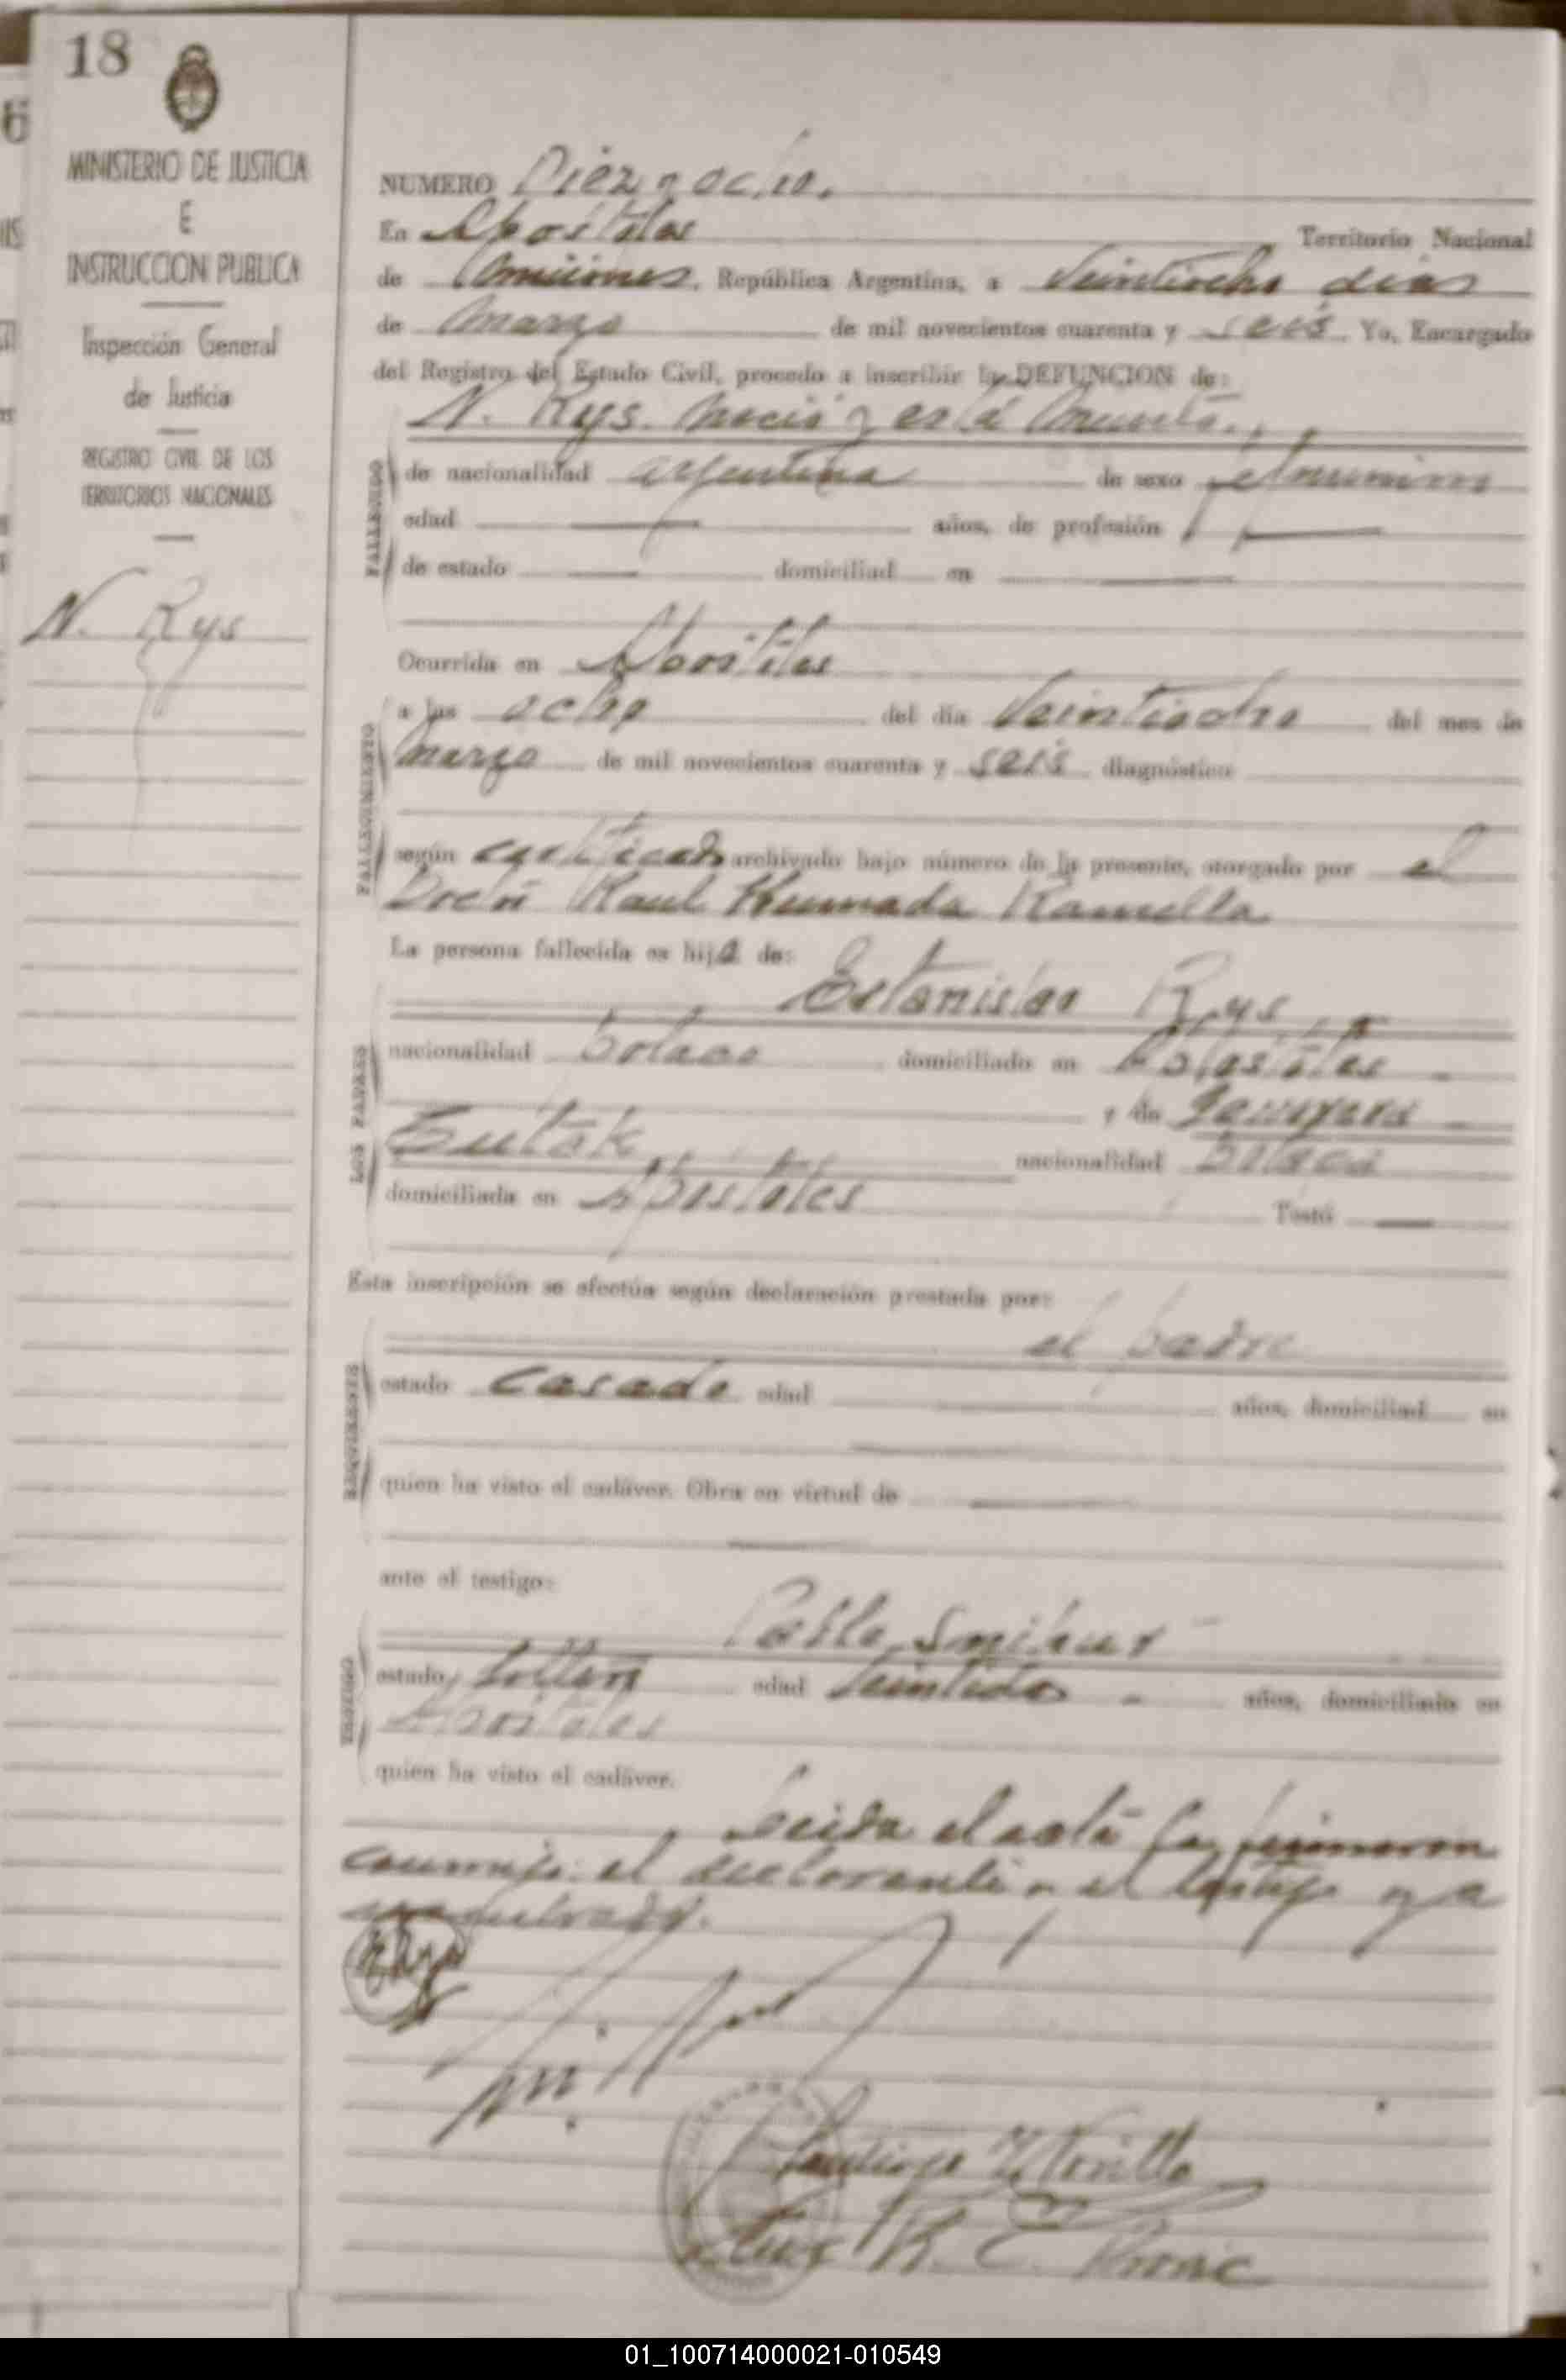 18
MINISTERIO DE JUSTICIA
E
INSTRUCCION PUBLICA
Inspección General
de Justicia
REGISTRO CIVIL DE LOS
TERRITORIOS NACIONALES
N. Rys
NUMERO Diez y ocho.
En Apóstoles Territorio Nacional
de Misiones, República Argentina, a Veintiocho dias
de Marzo de mil novecientos cuarenta y seis. Yo, Encargado
del Registro del Estado Civil, procedo a inscribir la DEFUNCION de:
N. Rys. Nació y está Muerta.
FALLECIDO
de nacionalidad argentina de sexo femenino
edad años, de profesión
de estado domiciliad en
FALLECIMIENTO
Ocurrida en Apóstoles
a las ocho del día Veintiocho del mes de
Marzo de mil novecientos cuarenta y seis diagnóstico
según certificado archivado bajo número de la presente, otorgado por el
Raul Ramella
La persona fallecida es hija de:
LOS PADRES
Estanislao Rys
nacionalidad polaco domiciliado en Apóstoles
y de
nacionalidad polaca
domiciliada en Apóstoles Testó
Esta inscripción se efectúa según declaración prestada por:
REQUIRENTE
el padre
estado casado edad años, domiciliad en
quien ha visto el cadáver. Obra en virtud de
ante el testigo:
TESTIGO
Pablo
estado soltero edad años, domiciliado en
Apóstoles
quien ha visto el cadáver.
Leida el acta la firmaron
conmigo el declarante y el testigo ya
nombrado.
01_100714000021-010549